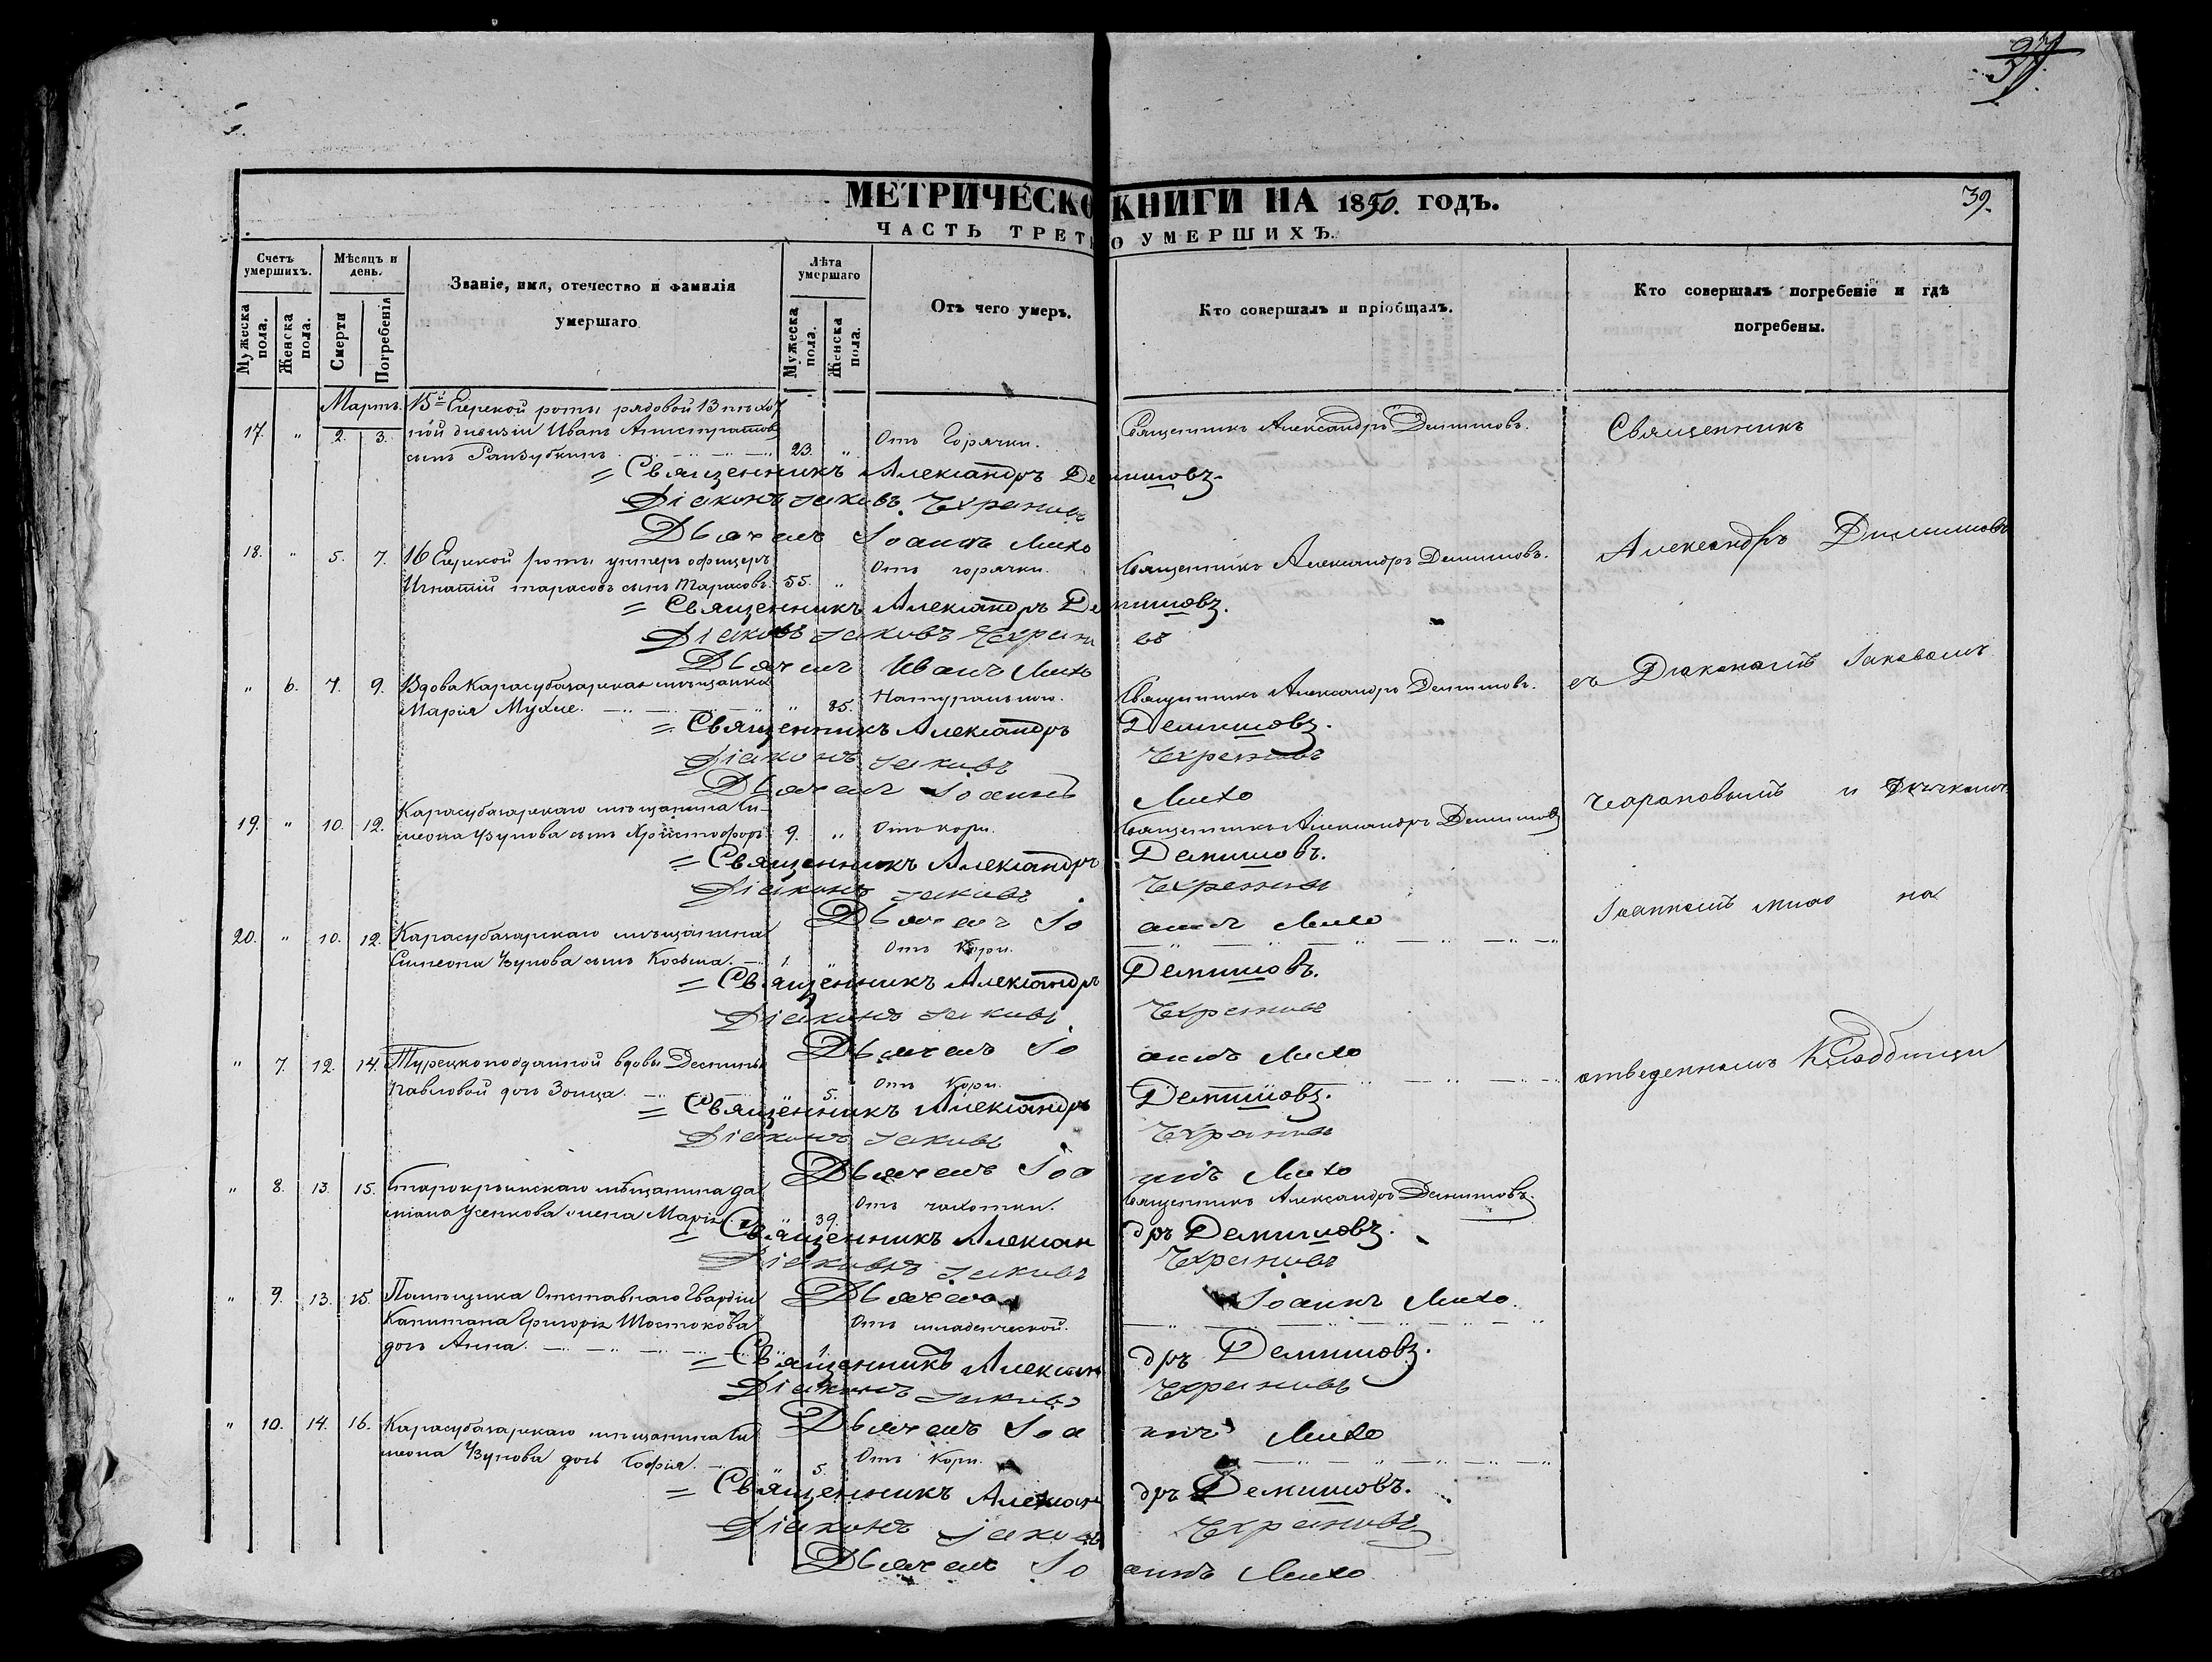 39.
МЕТРИЧЕСКО КНИГИ НА 1850. ГОДЪ.
ЧАСТЬ ТРЕТ О УМЕРШИХЪ.
Счетъ умершихъ.
Мужеска пола.
Женска пола.
Мѣсяцъ и день.
Смерти
Погребенія
Званіе, имя, отечество и фамилія
умершаго
Лѣта умершаго
Мужеска пола.
Женска пола.
Отъ чего умеръ.
Кто совершалъ и пріобщалъ.
Кто совершалъ погребеніе и гдѣ
погребены.
Мартъ.
17. " 2. 3. 15й Егерской роты рядовой 13 пѣхот
ной дивизіи Иванъ
сынъ 23. " Отъ Горячки. Священникъ Александръ Демишовъ. Священникъ
= Священникъ Александръ Демишовъ.
Діаконъ Іаковъ Чехрановъ
Дьячекъ Іоаннъ Михо
18. " 5. 7. 16 Егерской роты унтеръ офицеръ
Игнатій тарасовъ сынъ Тарасовъ. 55. " Отъ горячки. Священникъ Александръ Демишовъ. Александръ Димишовъ
= Священникъ Александръ Демишовъ.
Діаконъ Іаковъ Чехрановъ
Дьячекъ Иванъ Михо
" 6. 7. 9. Вдова Карасубазарская мѣщанка
Марія " 85. Натурально. Священникъ Александръ Демишовъ. съ Діакономъ Іаковомъ
= Священникъ Александръ Демишовъ.
Діаконъ Іаковъ Чехрановъ
Дьячекъ Іоаннъ Михо
19. " 10. 12. Карасубазарскаго мѣщанина Си
меона Узунова сынъ Христофоръ 9. " Отъ кори. Священникъ Александръ Демишовъ Чехрановымъ и Дьячкомъ
= Священникъ Александръ Демишовъ.
Діаконъ Іаковъ Чехрановъ
Дьячекъ Іоаннъ Михо
20. " 10. 12. Карасубазарскаго мѣщанина
Симеона Узунова сынъ Козьма. 1. " Отъ Кори. Іоанномъ михо на
= Священникъ Александръ Демишовъ.
Діаконъ Іаковъ Чехрановъ
Дьячекъ Іоаннъ Михо
" 7. 12. 14. Турецкоподданной вдовы Деспины
Павловой дочь Зоица. " 5. Отъ Кори. отведенномъ Кладбищи
= Священникъ Александръ Демишовъ.
Діаконъ Іаковъ Чехрановъ
Дьячекъ Іоаннъ Михо
" 8. 13. 15. Старокрымскаго мѣщанина да
міана Усенкова жена Марія " 39. Отъ чахотки. Священникъ Александръ Демишовъ.
= Священникъ Александръ Демишовъ.
Діаконъ Іаковъ Чехрановъ
Дьячекъ Іоаннъ Михо.
" 9. 13. 15. Помѣщика Отставнаго Гвардіи
Капитана Григорія Шостакова
дочь Анна. " 1. Отъ младенческой.
= Священникъ Александръ Демишовъ.
Діаконъ Іаковъ Чехрановъ
Дьячекъ Іоаннъ Михо
" 10. 14. 16. Карасубазарскаго мѣщанина Си
меона Узунова дочь Софія. " 5. Отъ Кори.
= Священникъ Александръ Демишовъ.
Діаконъ Іаковъ Чехрановъ
Дьячекъ Іоаннъ Михо